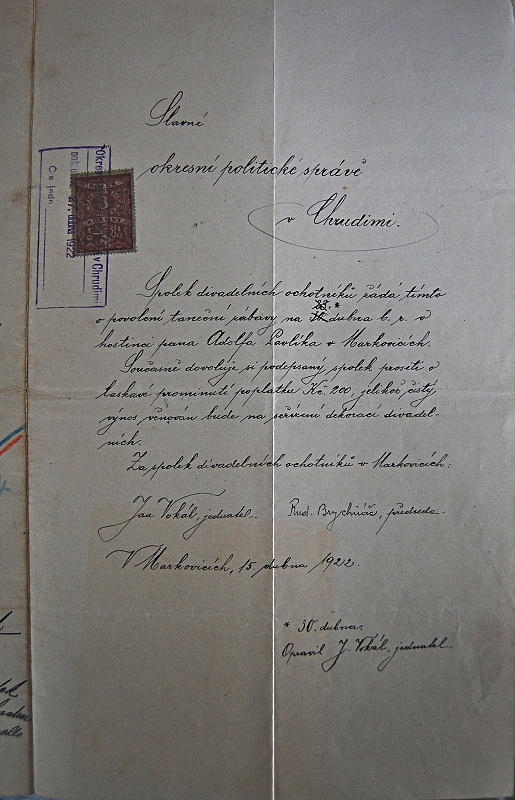 Slavné
okresní politické správě
v Chrudimi.
Spolek divadelních ochotníků žádá tímto
o povolení taneční zábavy na dubna b. r. v
hostinci pana Adolfa Pavlíka v Markovicích.
Současně dovoluje si podepsaný spolek prositi o
laskavé prominutí poplatku Kč. 200, jelikož čistý
výnos věnován bude na seřízení dekorací divadel-
ních.
Za spolek divadelních ochotníků v Markovicích:
Jan Vokál, jednatel. Rud. Brychnáč, předseda.
V Markovicích, 15. dubna 1922.
* 30. dubna.
Opravil J. Vokál, jednatel.
Okres v Chrudimi
dubna 1922
Čís. jedn.